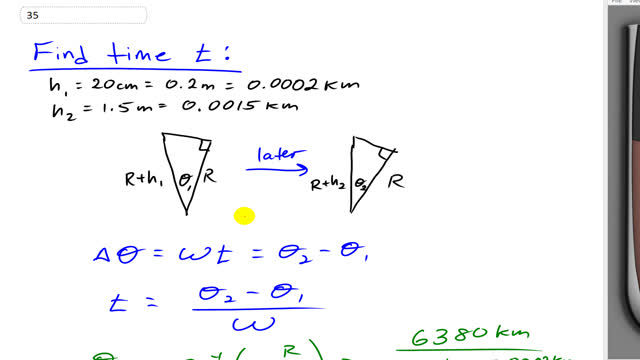 File View
35
Find time t:
h₁ = 20cm = 0.2m = 0.0002 km
h₂ = 1.5m = 0.0015 km
R+h₁ θ₁ R later R+h₂ θ₂ R
Δθ = ωt = θ₂ - θ₁
t = θ₂ - θ₁
ω
6380 km
R =